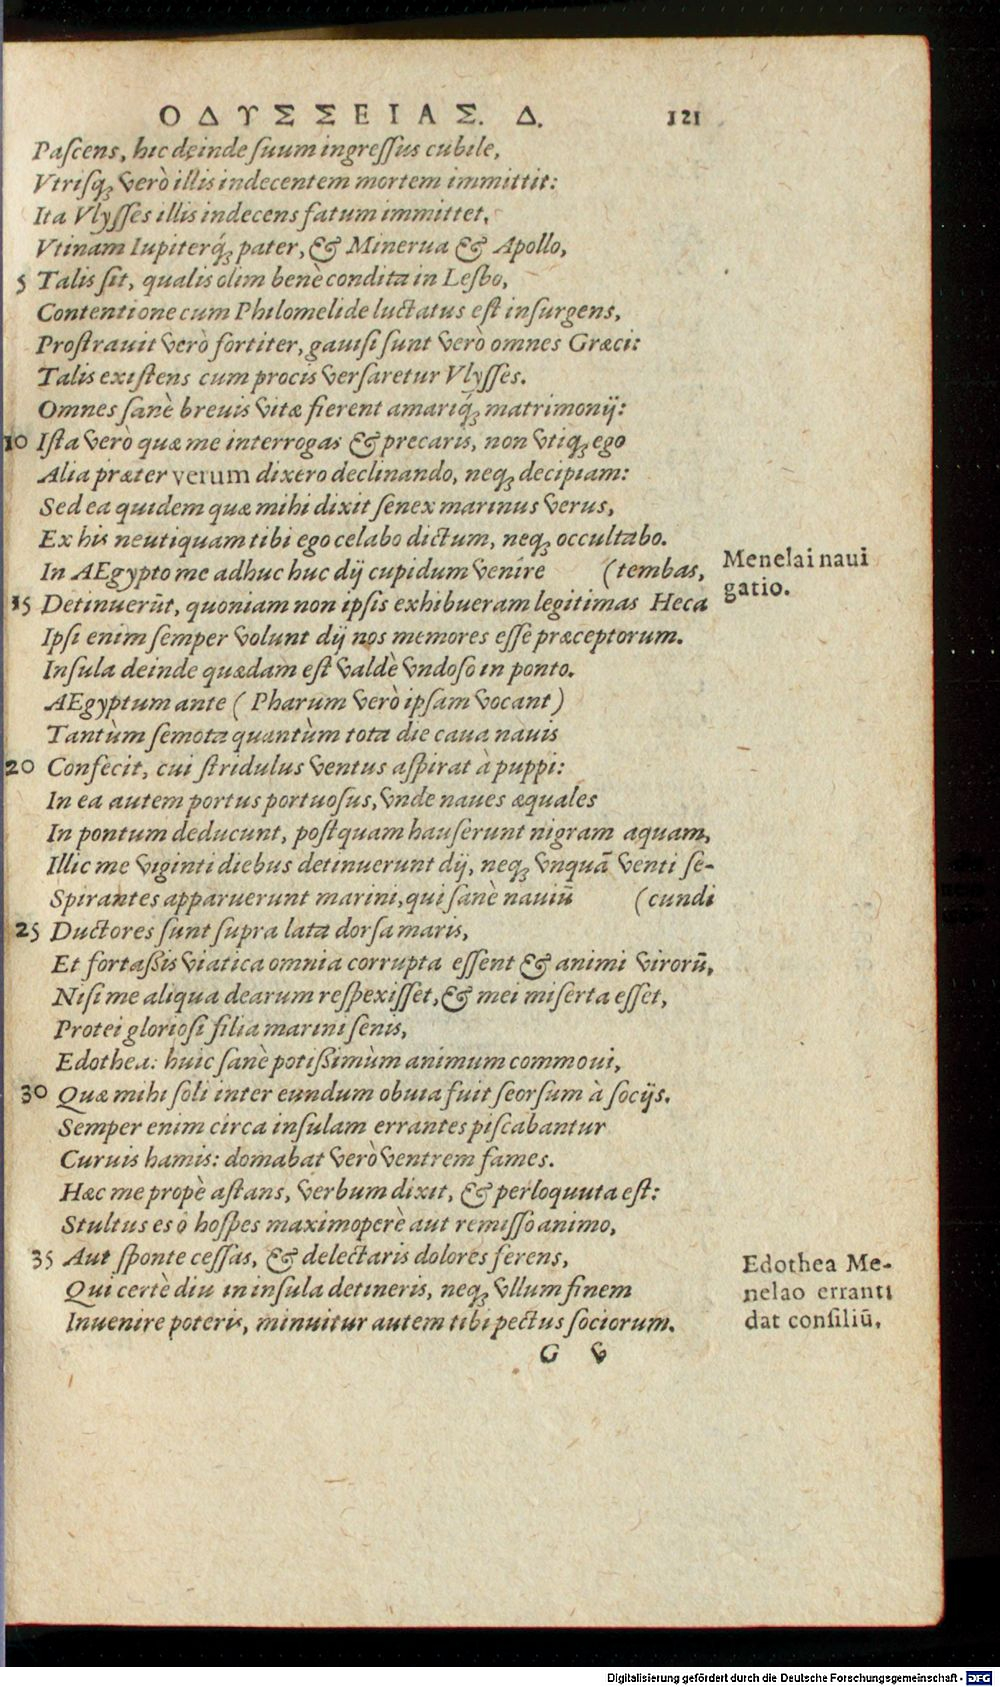 ΟΔΥΣΣΕΙΑΣ. Δ. 121
Pascens, hic deinde suum ingressus cubile,
Vtrisq; verò illis indecentem mortem immittit:
Ita Vlysses illis indecens fatum immittet,
Vtinam Iupiterq́; pater, & Minerua & Apollo,
5 Talis sit, qualis olim benè condita in Lesbo,
Contentione cum Philomelide luctatus est insurgens,
Prostrauit verò fortiter, gauisi sunt verò omnes Græci:
Talis existens cum procis versaretur Vlysses.
Omnes sanè breuis vitæ fierent amariq́; matrimonij:
10 Ista verò quæ me interrogas & precaris, non vtiq; ego
Alia præter verum dixero declinando, neq; decipiam:
Sed ea quidem quæ mihi dixit senex marinus verus,
Ex his neutiquam tibi ego celabo dictum, neq; occultabo.
In AEgypto me adhuc huc dij cupidum venire (tembas,
Menelai naui
gatio.
15 Detinuerūt, quoniam non ipsis exhibueram legitimas Heca
Ipsi enim semper volunt dij nos memores esse præceptorum.
Insula deinde quædam est valdè vndoso in ponto.
AEgyptum ante ( Pharum verò ipsam vocant )
Tantùm semota quantùm tota die caua nauis
20 Confecit, cui stridulus ventus aspirat à puppi:
In ea autem portus portuosus, vnde naues æquales
In pontum deducunt, postquam hauserunt nigram aquam,
Illic me viginti diebus detinuerunt dij, neq; vnquā venti se-
Spirantes apparuerunt marini, qui sanè nauiū (cundi
25 Ductores sunt supra lata dorsa maris,
Et fortaßis viatica omnia corrupta essent & animi virorū,
Nisi me aliqua dearum respexisset, & mei miserta esset,
Protei gloriosi filia marini senis,
Edothea: huic sanè potißimùm animum commoui,
30 Quæ mihi soli inter eundum obuia fuit seorsum à socijs.
Semper enim circa insulam errantes piscabantur
Curuis hamis: domabat verò ventrem fames.
Hæc me propè astans, verbum dixit, & perloquuta est:
Stultus es ô hospes maximoperè aut remisso animo,
35 Aut sponte cessas, & delectaris dolores ferens,
Qui certè diu in insula detineris, neq; vllum finem
Inuenire poteris, minuitur autem tibi pectus sociorum.
Edothea Me-
nelao erranti
dat consiliū,
G v
Digitalisierung gefördert durch die Deutsche Forschungsgemeinschaft - DFG